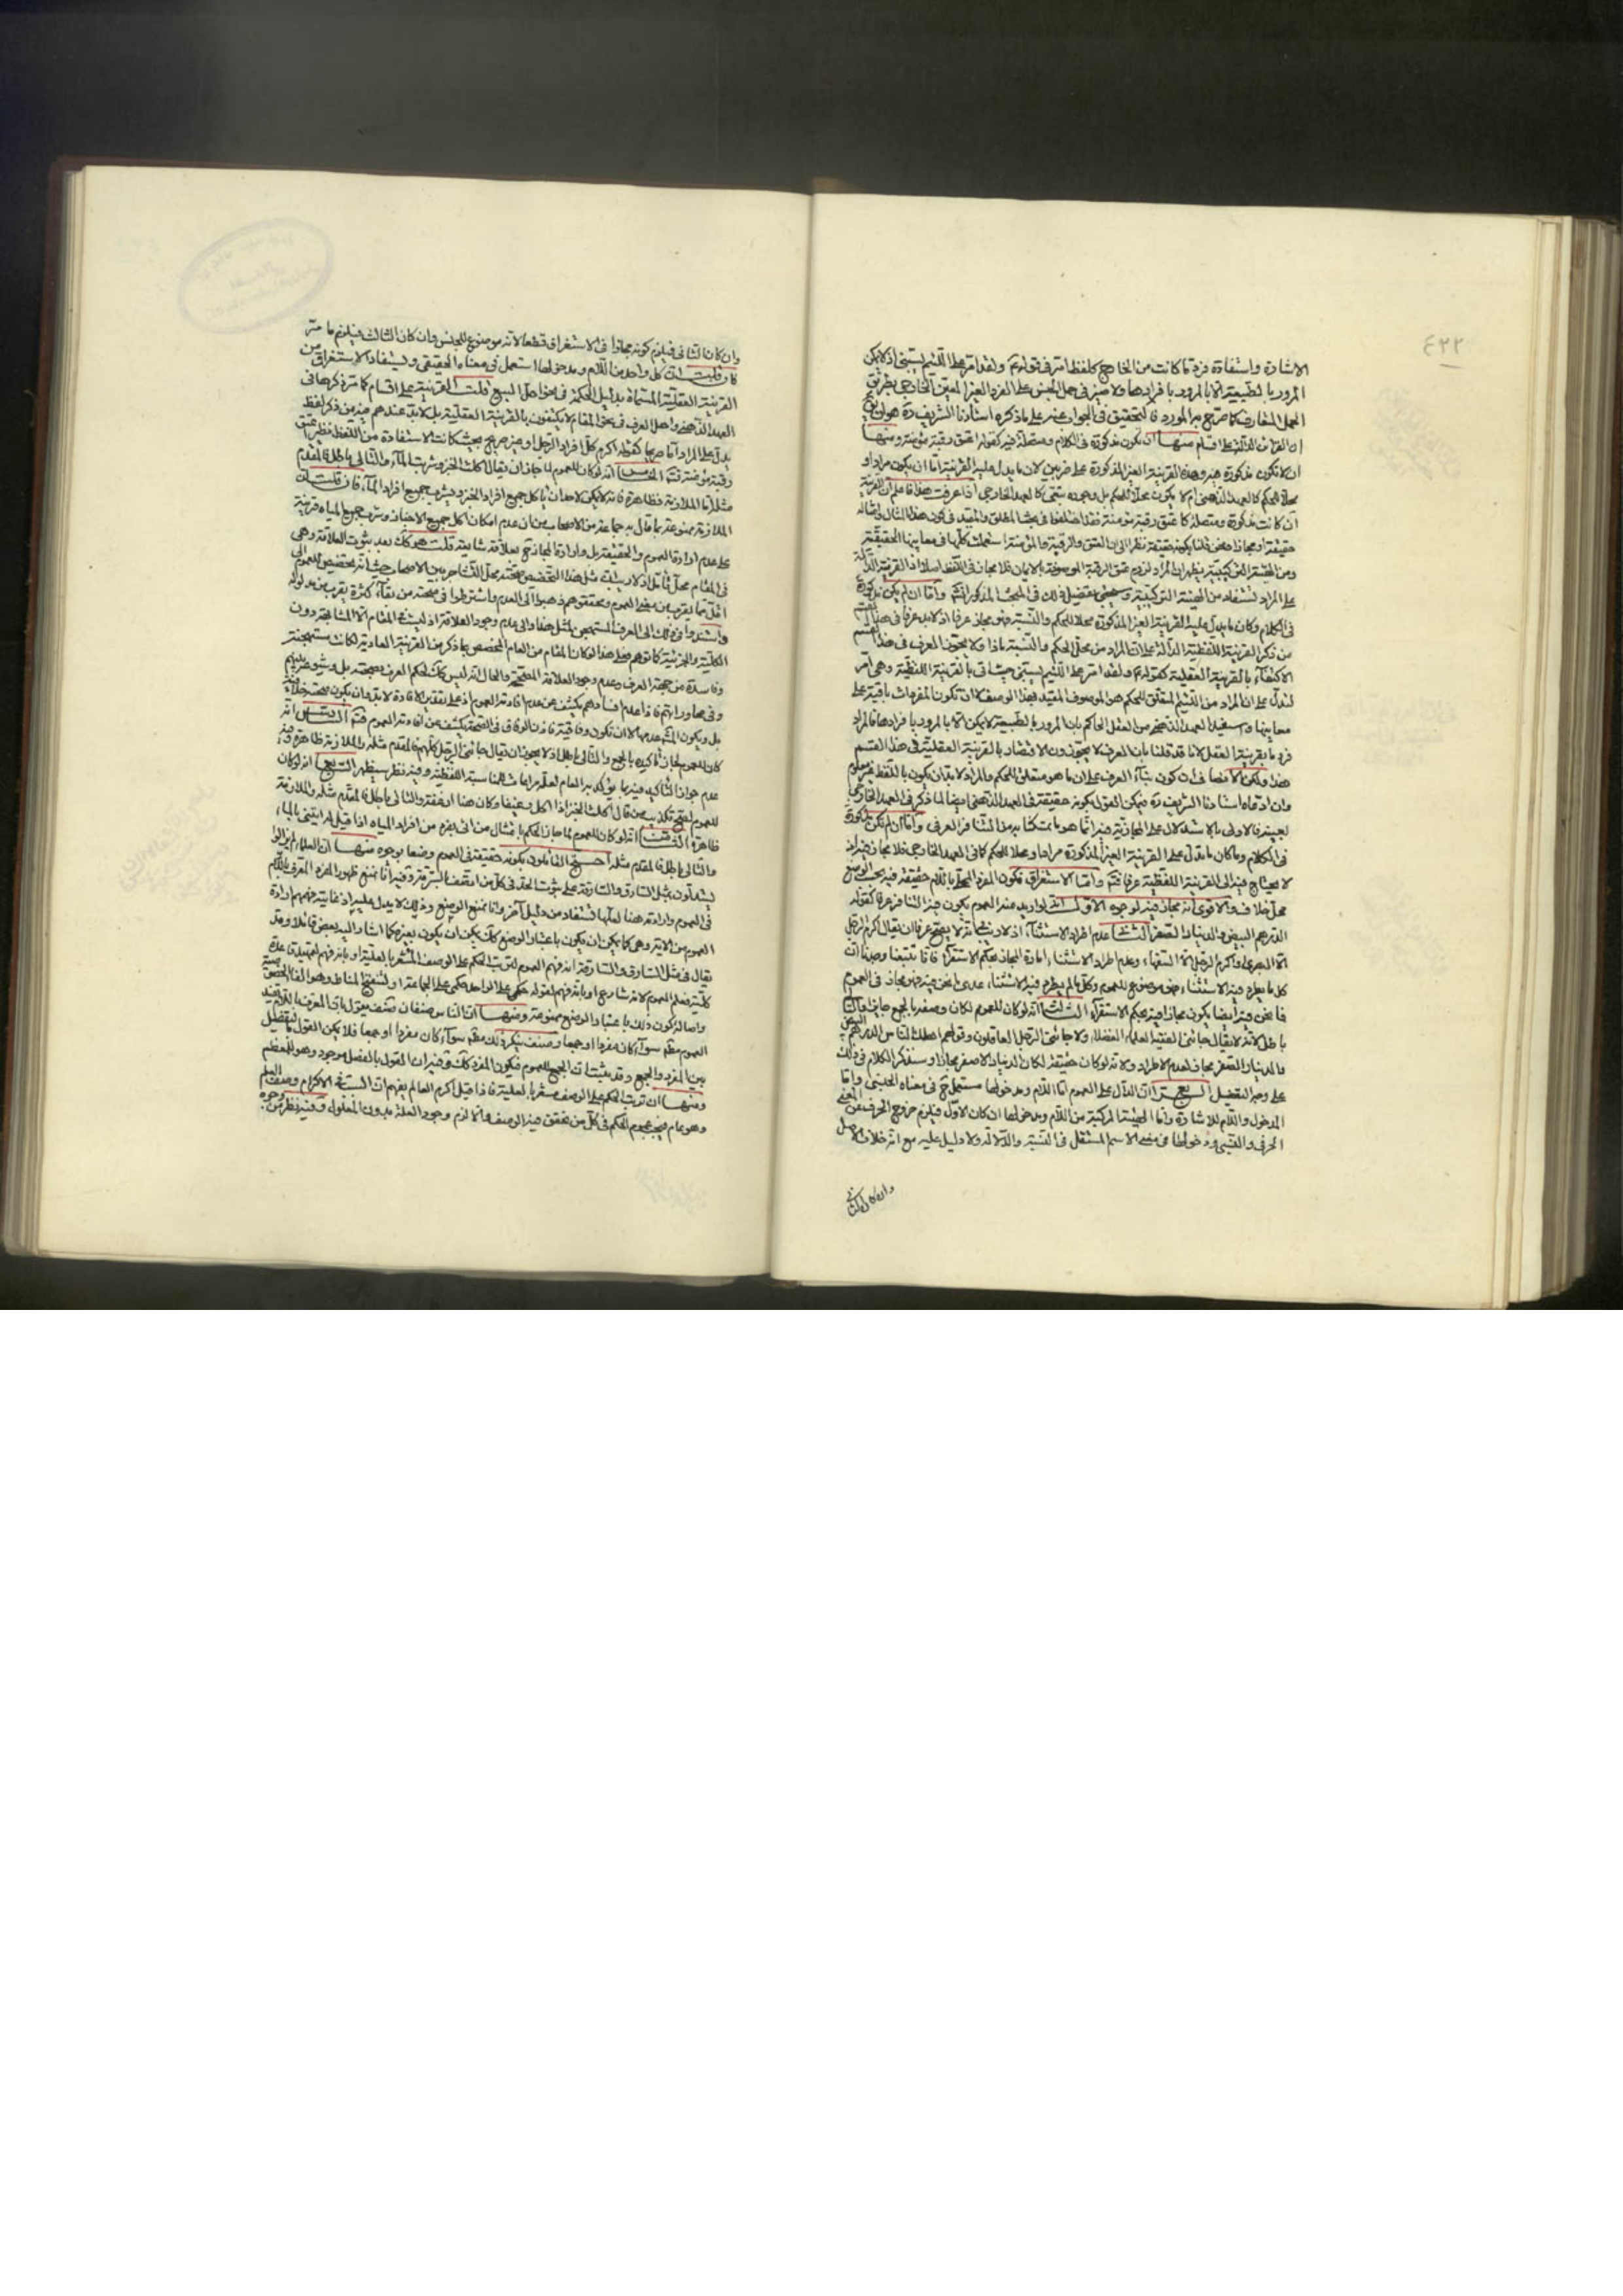 ٤٢٢
الاشارة واستفادة فرد ما كانت من الخارج كلفظ امر في قوله تم ولقد امر على اللئيم يسبني اذ لا يمكن
المرور بالطبيعة الا بالمرور بافرادها ولا ضير في حمل الجنس على الفرد الغير المعين الخارجي بطريق
الحمل المتعارف كما صرح به المورد فالتحقيق في الجواب عنه على ما ذكره استادنا الشريف ره هو ان يق
ان القرائن الدالة على اقسام منها ان يكون مذكورة في الكلام ومتصلة فيه كقوله اعتق رقبة مؤمنة ومنها
ان لا تكون مذكورة فيه وهذه القرينة الغير المذكورة على ضربين لان ما يدل عليه القرينة اما ان يكون مرادا و
محلا للحكم كالعهد الذهني ام لا يكون محلا للحكم بل وجوده شتى كالعهد الخارجي اذا عرفت هذا فاعلم ان القرينة
ان كانت مذكورة ومتصلة كاعتق رقبة مؤمنة فقد اختلفوا في بحث المطلق والمقيد في كون هذا المثال وامثاله
حقيقة او مجازا ونحن قلنا بكونه حقيقة نظرا الى ان العتق والرقبة والمؤمنة استعملت كلها في معانيها الحقيقية
ومن الهيئة التركيبية يظهر ان المراد لزوم عتق الرقبة الموصوفة بالايمان فلا مجاز في اللفظ اصلا اذ القرينة الدالة
على المراد تستفاد من الهيئة التركيبية وسيجئ تفصيل ذلك في المبحث المذكور انشاء واما ان لم يكن مذكورة
في الكلام وكان ما يدل عليه القرينة الغير المذكورة محلا للحكم والنسبة فهو مجاز عرفا اذ لا بد عرفا في هذا القسم
من ذكر القرينة اللفظية الدالة على ان المراد من محل الحكم والنسبة ماذا ولا يجوز العرف في هذا القسم
الاكتفاء بالقرينة العقلية كقوله تم ولقد امر على اللئيم يسبني حيث اتى بالقرينة اللفظية وهي امر
لتدل على ان المراد من اللئيم المتعلق للحكم هو الموصوف المقيد فهذا الوصف كان تكون المفردات باقية على
معانيها واستفيد العهد الذهني من العقل الحاكم بان المرور بالطبيعة لا يمكن الا بالمرور بافرادها فالمراد
فرد ما بقرينة العقل لانا قد قلنا بان العرف لا يجوزون الاقتصار بالقرينة العقلية في هذا القسم
هذا ولكن الانصاف ان كون بناء العرف على ان ما هو متعلق للحكم والمراد لا بد ان يكون باللفظ غير معلوم
وان ادعاه استادنا الشريف ره فيمكن القول بكونه حقيقة في العهد الذهني ايضا لما ذكر في العهد الخارجي
بعينه فالاولى بالاستدلال على المجازية فيه انما هو بما تمسكنا به من التنافر العرفي واما ان لم تكن مذكورة
في الكلام وما كان ما يدل على القرينة الغير المذكورة مرادا ومحلا للحكم كما في العهد الخارجي فلا مجاز فيه اذ
لا يحتاج فيه الى القرينة اللفظية عرفا فتم واما الاستغراق فكون المفرد المحلى باللام حقيقة فيه بحسب الوضع
محل خلاف والاقوى انه مجاز فيه لوجوه الاول انه لو اريد منه العموم يكون فيه التنافر عرفا كقوله
الدرهم البيض والدينار الصفر الثاني عدم اطراد الاستثناء اذ لا ريب في انه لا يصح عرفا ان يقال اكرم الرجل
الا البصري واكرم الرجل الا الفقهاء وعدم اطراد الاستثناء امارة المجاز بحكم الاستقراء فانا تتبعنا وجدنا ان
كل ما يطرد فيه الاستثناء فهو موضوع للعموم وكل ما لم يطرد فيه الاستثناء عدى ما نحن فيه فهو مجاز في العموم
فما نحن فيه ايضا يكون مجازا فيه بحكم الاستقراء الثالث انه لو كان للعموم لكان وصفه بالجمع جايزا والتالي
باطل لانه لا يقال جائني الفقيه العلماء الفضلاء ولا جائني الرجل العاقلون وقولهم اهلك الناس الدرهم البيض
والدينار الصفر مجاز لعدم الاطراد ولانه لو كان حقيقة لكان الدينار الاصفر مجازا وسنذكر الكلام في ذلك
على وجه التفصيل الرابع ان الدال على العموم اما اللام ومدخولها مستعمل في معناه الجنسي واما
المدخول واللام للاشارة واما الهيئة المركبة من اللام ومدخولها ان كان الاول فيلزم خروج الحرف عن المعنى
الحرفي والتبعي ودخولها في معنى الاسم المستقل في النسبة والدلالة ولا دليل عليه مع انه خلاف الاصل
وان كان الثاني
وان كان الثاني فيلزم كونه مجازا في الاستغراق قطعا لانه موضوع للجنس وان كان الثالث فيلزم ما مر
فان قلت ان كل واحد من اللام ومدخولها استعمل في معناه الحقيقي ويستفاد الاستغراق من
القرينة العقلية المسماة بدليل الحكمة في نحو احل البيع قلت القرينة على اقسام كما مر ذكرها في
العهد الذهني واهل العرف في نحو المقام لا يكتفون بالقرينة العقلية بل لا بد عندهم فيه من ذكر لفظ
يدل على المراد اما صريحا كقوله اكرم كل افراد الرجل او غير صريح بحيث كانت الاستفادة من اللفظ نظير اعتق
رقبة مؤمنة فتم الخامس انه لو كان للعموم لما جاز ان يقال اكلت الخبز وشربت الماء والتالي باطل فالمقدم
مثله اما الملازمة فظاهرة فانه لا يمكن لاحد ان ياكل جميع افراد الخبز ويشرب جميع افراد الماء فان قلت ان
الملازمة ممنوعة بما قال به جماعة من الاصحاب من ان عدم امكان اكل جميع الاخباز وشرب جميع المياه قرينة
على عدم ارادة العموم والحقيقة بل وارادة المجاز لعلاقة شايعة قلت هو كك بعد ثبوت العلاقة وهي
في المقام محل تامل اذ لا ريب ان مثل هذا التخصيص صحته محل التشاجر بين الاصحاب حيث انه تخصيص للعموم الى
اقل مما يقرب من معنى العموم ومحققوهم ذهبوا الى العدم واشترطوا في صحته من بقاء كثرة يقرب من مدلوله
واستندوا في ذلك الى العرف المستهجن لمثل هذا والى عدم وجود العلاقة اذ ليست في المقام الا المشابهة دون
الكلية والجزئية كما توهم فعلى هذا لو كان المقام من العام المخصص بما ذكر من القرينة العادية لكانت مستهجنة
وفاسدة من جهة العرف وعدم وجود العلاقة المصححة والحال انه ليس كك لحكم العرف بصحته بل وشيوعه بينهم
وفي محاوراتهم فاذا عدم فسادهم يكشف عن عدم افادته العموم اذ على تقدير الافادة لا بد وان يكون صحته خلافية
بل ويكون المشهد عدمها لا ان تكون وفاقية فاذن الوفاق في الصحة يكشف عن عدم افادته العموم فتم السادس انه
كان للعموم لجاز تاكيده بالجمع والتالي باطل اذ لا يجوز ان يقال جائني الرجل كلهم فالمقدم مثله والملازمة ظاهرة وفيه
عدم جواز التاكيد فيه بما يؤكد به العام لعله مراعاة للمناسبة اللفظية وفيه نظر سيظهر السابع انه لو كان
للعموم لصح تكذيب من قال اكلت الخبز اذا اكل رغيفا وكان هنا ارغفة والتالي باطل فالمقدم مثله والملازمة
ظاهرة الثامن انه لو كان للعموم لما جاز الحكم بامتثال من اتى بفرد من افراد المياه اذا قيل له ايتني بالماء
والتالي باطل فالمقدم مثله احتج القائلون بكونه حقيقة في العموم وضعا بوجوه منها ان العلماء لم يزالوا
يستدلون بمثل السارق والسارقة على ثبوت الحد في كل من اتصف بالسرقة وفيه انا نمنع ظهور المفرد المعرف باللام
في العموم وارادته هنا لعلها تستفاد من دليل آخر وانا نمنع الوضع وذلك لا يدل عليه اذ غاية فهمهم ارادة
العموم من الاية وهي كما يمكن ان يكون باعتبار الوضع كك يمكن ان يكون بغيره كما اشار اليه بعض قائلا وقد
يقال في مثل السارق والسارقة انه فهم العموم لترتب الحكم على الوصف المشعر بالعلية او بانه فهم لتمهيد قاعدة
كلية فعلم العموم لانه شارع او بانه فهم لقوله حكمي على الواحد حكمي على الجماعة او لتنقيح المناط وهو الغاء الخصوصية
واصالة كون ذلك باعتبار الوضع ممنوعة ومنها ان الناس صنفان صنف يقول بان المعرف باللام يفيد
العموم مطم سواء كان مفردا او جمعا وصنف ينكر ذلك مطم سواء كان مفردا او جمعا فلا يمكن القول بالتفصيل
بين المفرد والجمع وقد ثبت ان الجمع للعموم فيكون المفرد كك وفيه ان القول بالفصل موجود وهو للمعظم
ومنها ان ترتب الحكم على الوصف مشعر بالعلية فاذا قيل اكرم العالم يفهم ان العلة في الاكرام وصف العلم
وهو عام فيجب عموم الحكم في كل من تحقق فيه الوصف والا لزم وجود العلة بدون المعلول وفيه نظر من وجوه